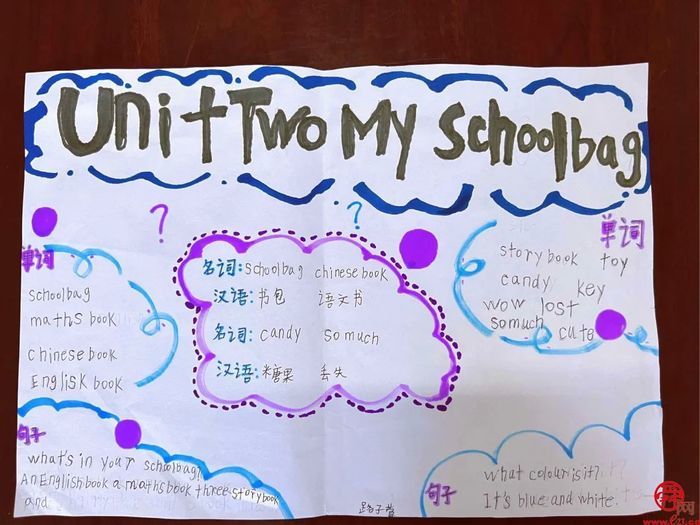 Unit Two My Schoolbag
?
?
单词
schoolbag
maths book
chinese book
Englisk book
名词: schoolbag chinese book
汉语: 书包 语文书
名词: candy so much
汉语: 糖果 丢失
单词
storybook toy
candy key
wow lost
somuch
cute
句子
what's in your schoolbag?
An English book a maths book three storybook
and
句子
what colour is it?
It's blue and white.